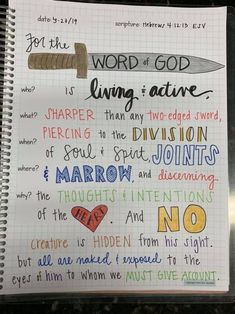 date: 4-23-19 scripture: Hebrews 4:12-13 ESV
For the
WORD of GOD
who? is living & active,
what? SHARPER than any two-edged sword,
PIERCING to the DIVISION
when? of Soul & Spirit, of JOINTS
where? & MARROW, and discerning
why? the THOUGHTS & INTENTIONS
of the HEART. And NO
creature is HIDDEN from his sight,
but all are naked & exposed to the
eyes of him to whom we MUST GIVE ACCOUNT.